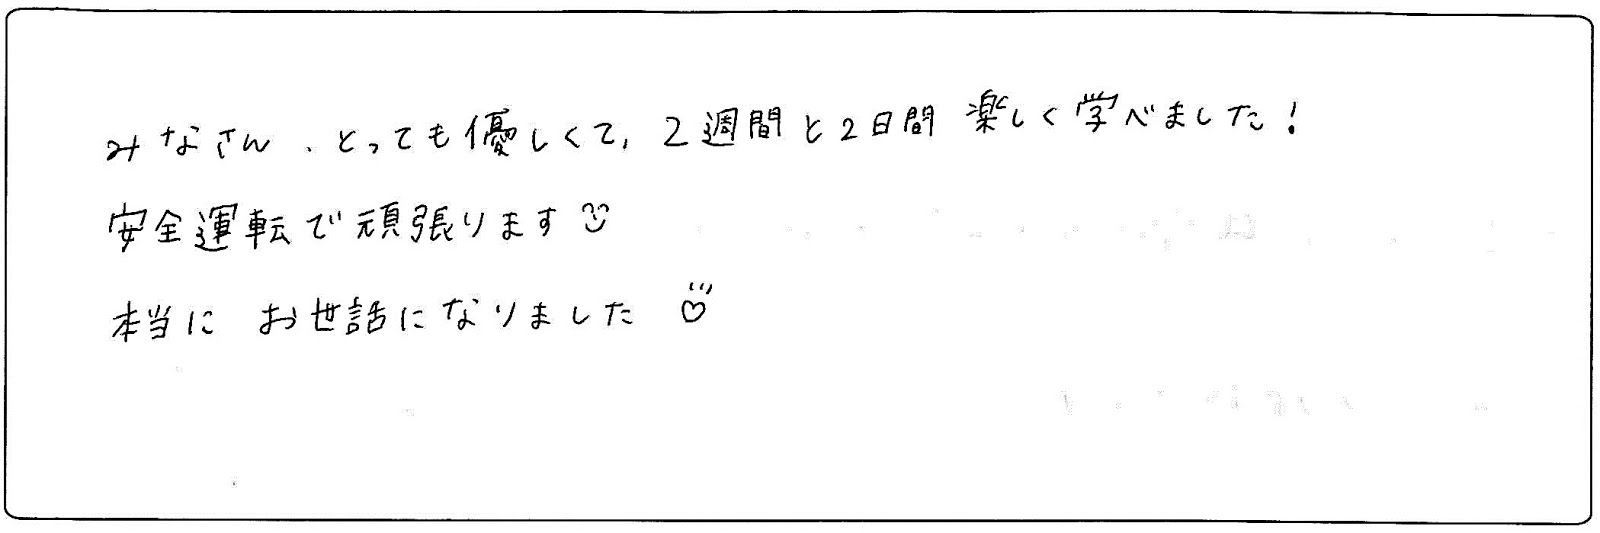 みなさん、とっても優しくて、2週間と2日間 楽しく学べました！
安全運転で頑張ります☺
本当に お世話になりました ♡